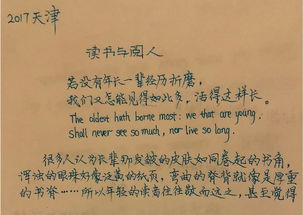 2017天津
读书与阅人
若没有年长一辈经历折磨，
我们又怎能见得如此多，活得这样长。
The oldest hath borne most: we that are young,
Shall never see so much, nor live so long.
很多人认为长辈皱皱的皮肤如同卷起的书角，
浑浊的眼珠好像泛黄的纸页，弯曲的脊背就像是厚重
的书脊……所以年轻的读者往往敬而远之，甚至觉得